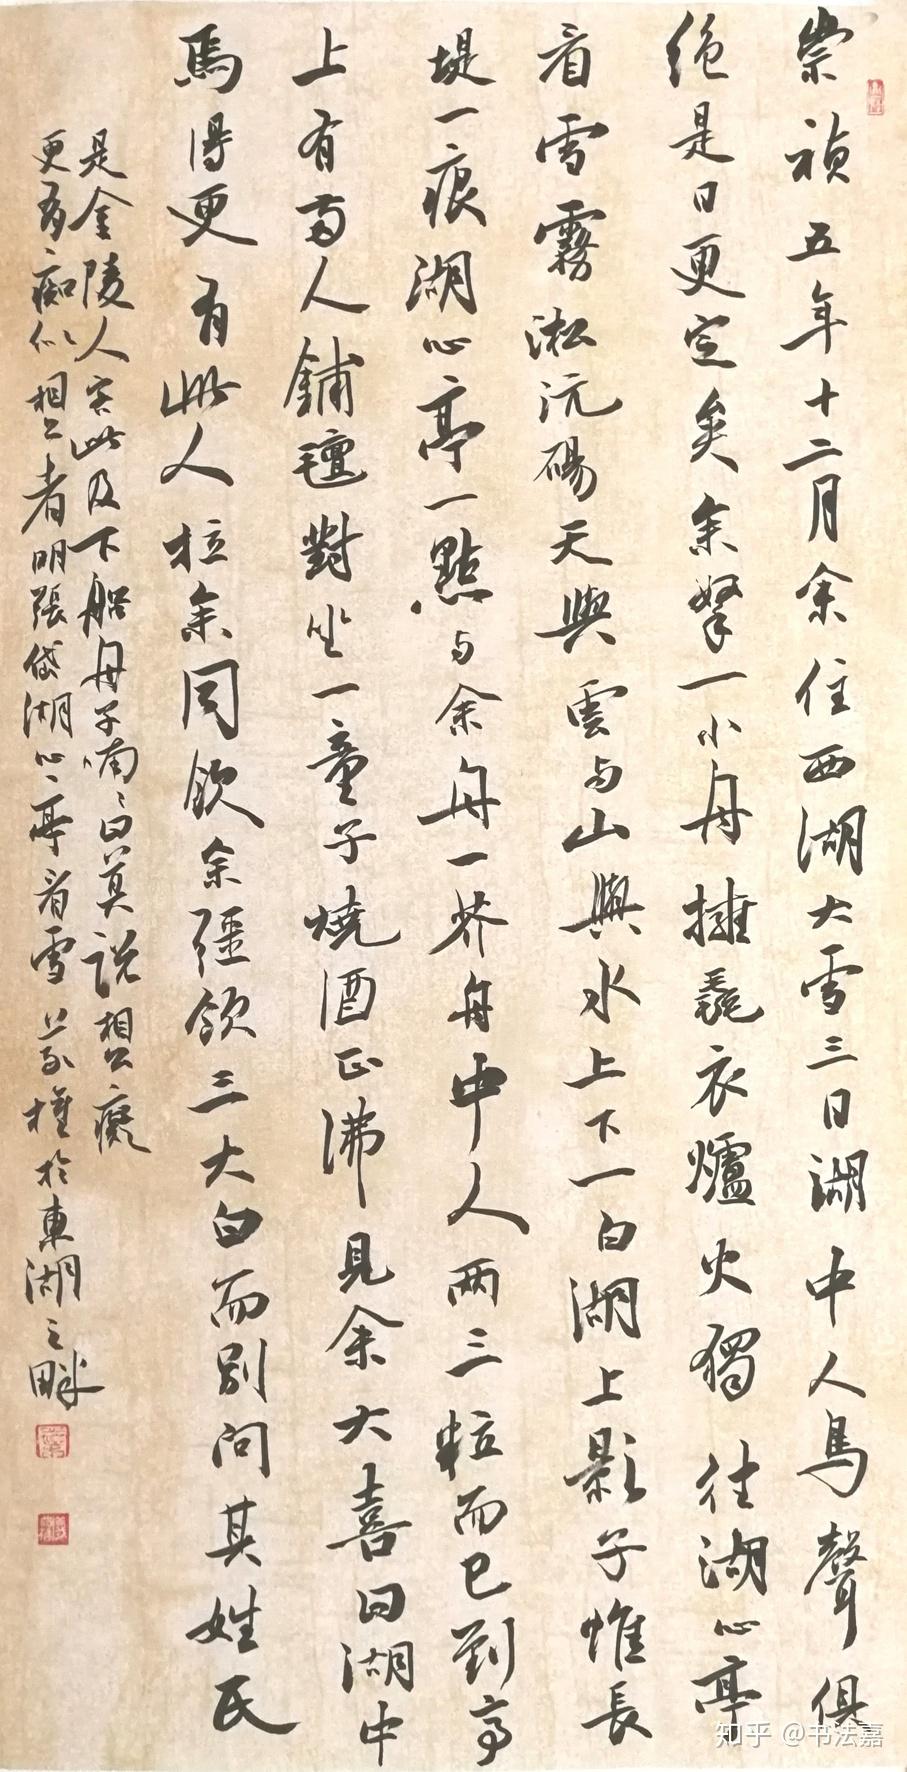 崇禎五年十二月余住西湖大雪三日湖中人鳥聲俱
絕是日更定矣余拏一小舟擁毳衣爐火獨往湖心亭
看雪霧淞沆碭天與雲与山與水上下一白湖上影子惟長
堤一痕湖心亭一點与余舟一芥舟中人两三粒而已到亭
上有两人鋪氊對坐一童子燒酒正沸見余大喜曰湖中
焉得更有此人拉余同飲余彊飲三大白而別問其姓氏
是金陵人客此及下船舟子喃喃曰莫說相公癡
更有痴似相公者明張岱湖心亭看雪 於東湖之畔
知乎 @书法嘉